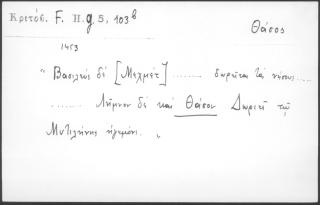 Κριτόβ. F. H. g 5, 103b
Θάσος
1453
" Βασιλεὺς δὲ [Μεχμὲτ] ........ δωρεῖται τὰς νήσους ...
........ Λῆμνον δὲ καὶ Θάσον Δωριεῖ τῷ
Μυτιλήνης ἡγεμόνι. "